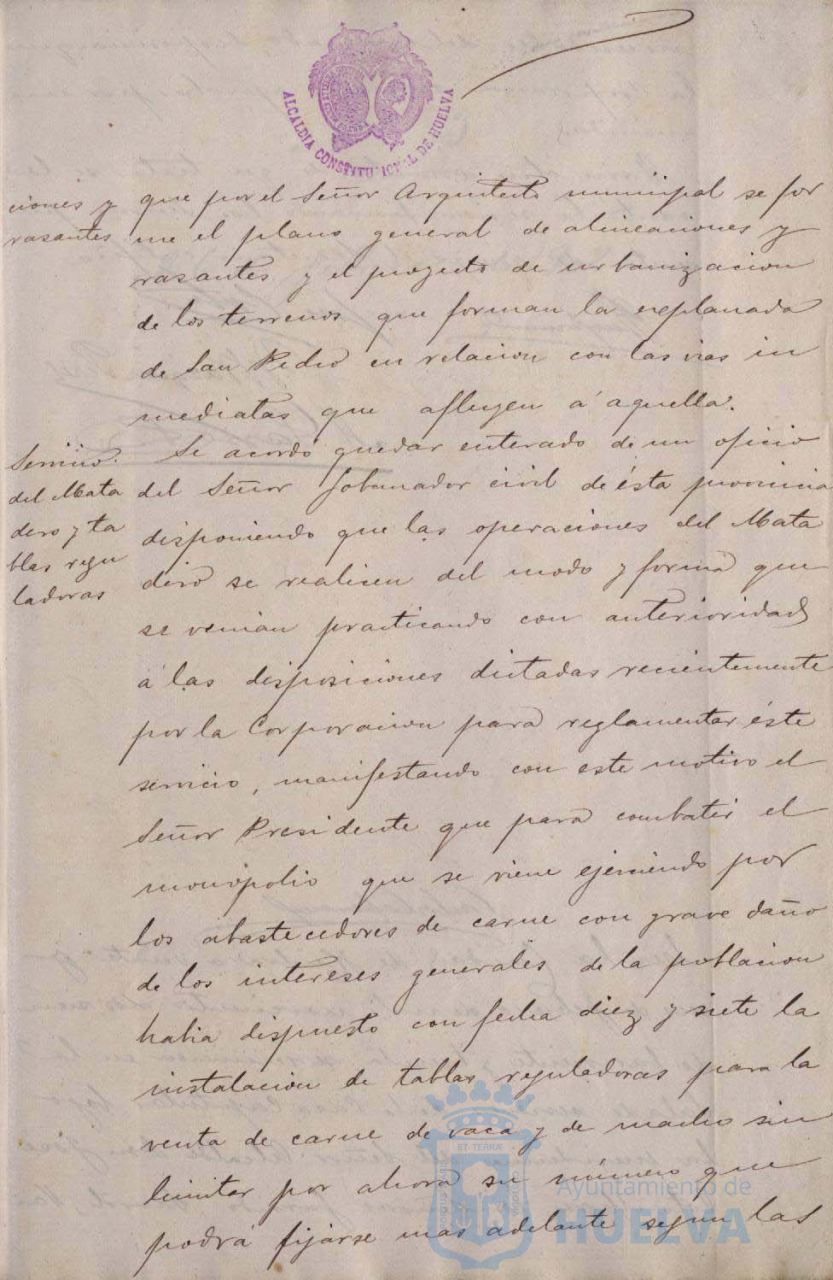 ALCALDIA CONSTITUCIONAL DE HUELVA
ciones y
rasantes
que por el Señor Arquitecto municipal se for
me el plano general de alineaciones y
rasantes y el proyecto de urbanizacion
de los terrenos que forman la explanada
de San Pedro en relacion con las vias in
mediatas que afluyen á aquella.
Servicio
del Mata
dero y ta
blas regu
ladoras
Se acordó quedar enterado de un oficio
del Señor Gobernador civil de ésta provincia
disponiendo que las operaciones del Mata
dero se realicen del modo y forma que
se venian practicando con anterioridad
á las disposiciones dictadas recientemente
por la Corporacion para reglamentar éste
servicio, manifestando con este motivo el
Señor Presidente que para combatir el
monópolio que se viene ejerciendo por
los abastecedores de carne con grave daño
de los intereses generales de la poblacion
habia dispuesto con fecha diez y siete la
instalacion de tablas reguladoras para la
venta de carne de vaca y de macho sin
limitar por ahora su número que
podrá fijarse mas adelante segun las
ET TERRA
Ayuntamiento de
HUELVA